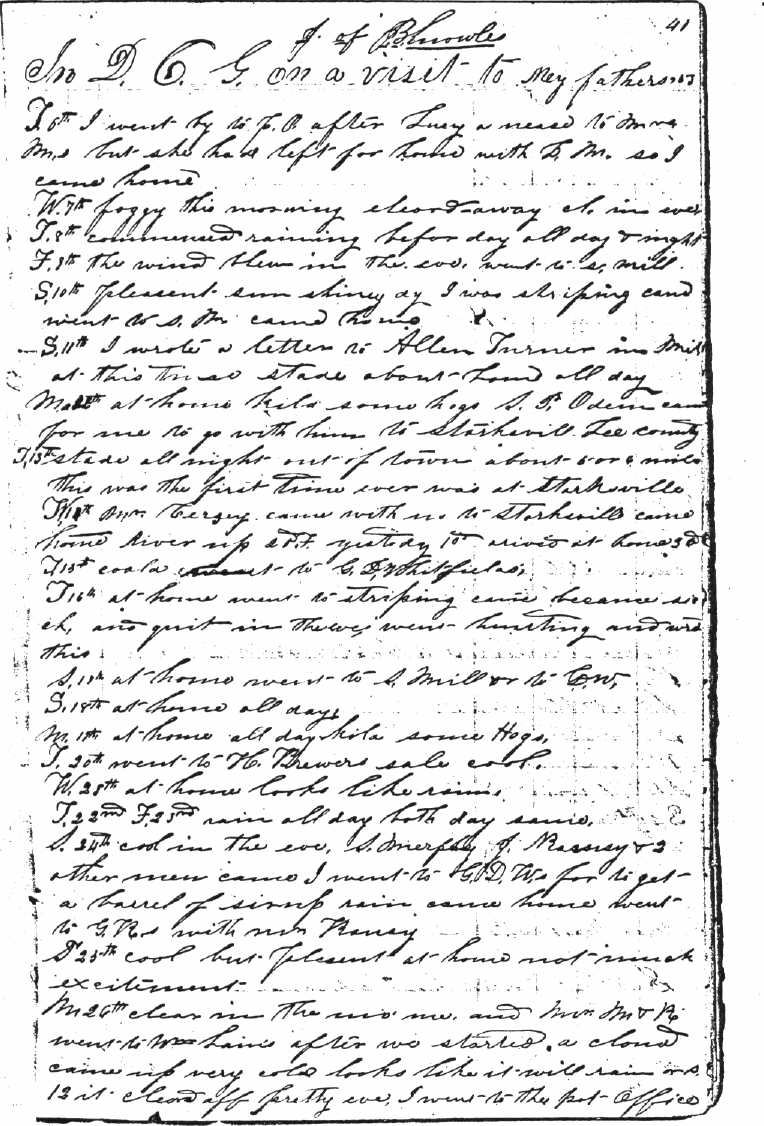 41
J. of B Knowles
In D. C. G. on a visit to My fathers
T. 6th I went by to P. O. after Lucy a nease to Mrs
Ms but she had left for home with D. M. so I
came home
W. 7th foggy this morning cleard away cl. in eve
T. 8th commenced raining befor day all day & night
F. 9th the wind blew in the eve. went to s. mill.
S. 10th pleasent sun shiney dy I was striping cane
went to S. M. came home
S. 11th I wrote a letter to Allen Turner in Mis
at this time stade about home all day
M. 12th at home kild some hogs S. P. Odem came
for me to go with him to Starkevill Lee county
T. 13th stade all night out of town about 5 or 6 miles
this was the first time ever was at Starksville
W. 14th Mr. came with us to Starksville came
home River up yestody arived at home
T 15th coold went to G. D. Whitfields,
F 16th at home went to striping cane became
ch, and quit in the eve went hunting and
this
S. 17th at home went to S. Mill & to C. W,
S. 18th at home all day,
M. 19th at home all day kild some Hogs,
T. 20th went to H. Brewers sale cool.
W. 21th at home looks like rain,
T. 22nd F. 23nd rain all day both day same,
S. 24th cool in the eve, S. Merphy J. Ransy & 2
other men came I went to G. D. Ws for to get
a barrel of sirup rain came home went
to G. Rs with mr Ransy
S 25th cool but plesent at home not much
excitement
M. 26th clear in the mo me. and Mr. M & R.
went to hains after we started. a cloud
came up very cold looks like it will rain or s
12 it cleard off pretty eve, I went to the post office